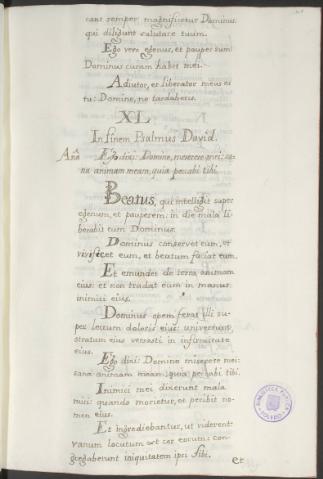 cant semper magnificetur Dominus:
qui diligunt salutare tuum.
Ego vero egenus, et pauper sum:
Dominus curam habet mei.
Adiutor, et liberator meus es
tu: Domine, ne tardaberis.
XL
In finem Psalmus David.
Anã Ego dixi: Domine, miserere mei: sa-
na animam meam, quia peccabi tibi.
Beatus, qui intelligit super
egenum, et pauperem: in die mala li-
berabit eum Dominus.
Dominus conservet eum, et
vivificet eum, et beatum faciat eum
Et emundet de terra animam
eius: et non tradat eum in manus
inimici eius.
Dominus opem ferat illi su-
per lectum doloris eius: universum
stratum eius versasti in infirmitate
eius.
Ego dixi: Domine miserere mei:
sana animam meam: quia peccabi tibi.
Inimici mei dixerunt mala
mici: quando morietur, et peribit no-
men eius.
Et ingrediebantur, ut viderent:
vanum locutum est cor eorum: con-
gregaberunt iniquitatem ipsi sibi.
et